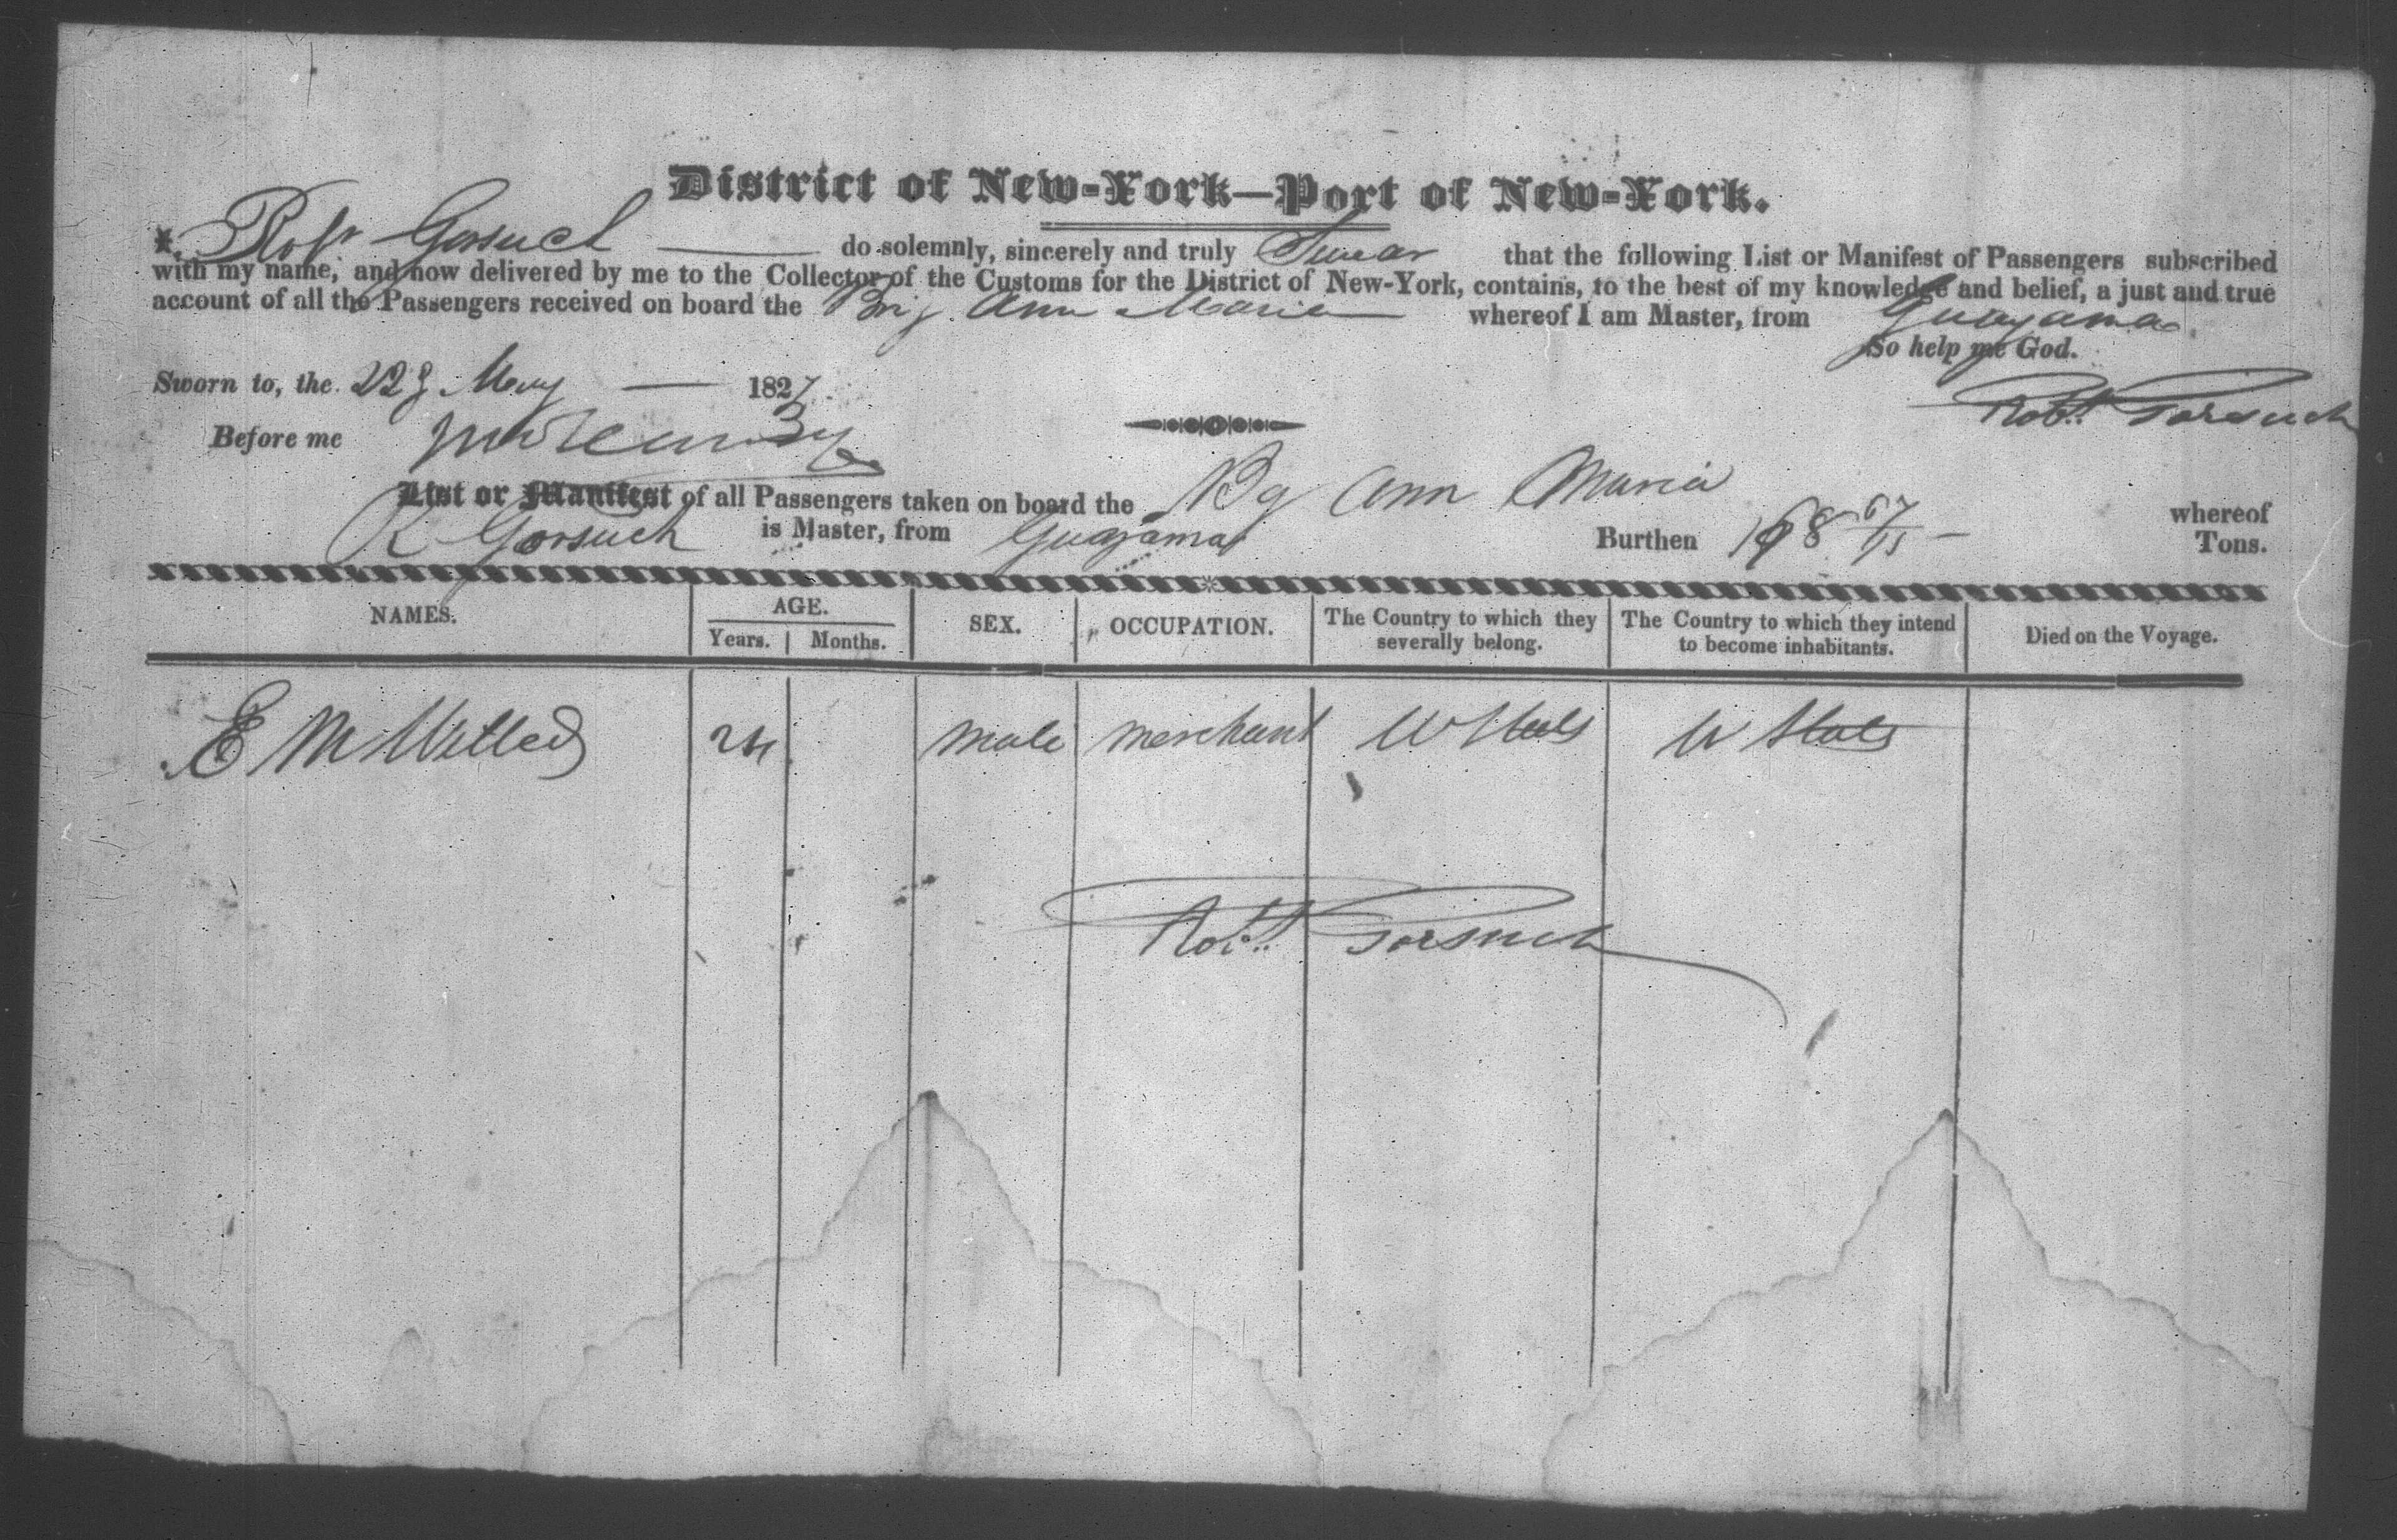 District of New-York—Port of New-York.
I, Robt Gorsuch do solemnly, sincerely and truly Swear that the following List or Manifest of Passengers subscribed
with my name, and now delivered by me to the Collector of the Customs for the District of New-York, contains, to the best of my knowledge and belief, a just and true
account of all the Passengers received on board the Brig Ann Maria whereof I am Master, from Guayama
So help me God.
Sworn to, the 22d May 1827
Robt Gorsuch
Before me
List or Manifest of all Passengers taken on board the Bg Ann Maria whereof
R Gorsuch is Master, from Guayama Burthen 168 67/95 Tons.
NAMES. AGE. SEX. OCCUPATION. The Country to which they severally belong. The Country to which they intend to become inhabitants. Died on the Voyage.
Years. Months.
E M Willed 24 male merchant U States U States
Robt Gorsuch